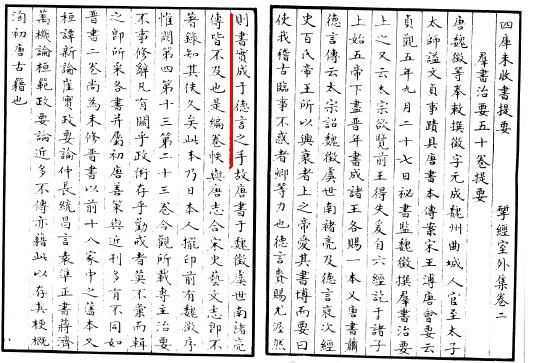 四庫未收書提要 揅經室外集卷二
羣書治要五十卷提要
唐魏徵等奉敕撰徵字元成魏州曲城人官至太子
太師諡文貞事蹟具唐書本傳案宋王溥唐會要云
貞觀五年九月二十七日祕書監魏徵撰羣書治要
上之又云太宗欲覽前王得失爰自六經訖于諸子
上始五帝下盡晉年書成諸王各賜一本又唐書蕭
德言傳云太宗詔魏徵虞世南褚亮及德言裒次經
史百氏帝王所以興衰者上之帝愛其書博而要曰
使我稽古臨事不惑者卿等力也德言賚賜尤渥然
則書實成于德言之手故唐書于魏徵虞世南褚亮
傳皆不及也是編卷帙與唐志合宋史藝文志即不
著錄知其佚久矣此本乃日本人擺印前有魏徵序
惟闕第四第十三第二十三卷今觀所載專主治要
不事修辭凡有關乎政術存乎勸戒者莫不彙而輯
之即所采各書并屬初唐善策與近刊多有不同如
晉書二卷尚為未修晉書以前十八家中之舊本又
桓譚新論崔寔政要論仲長統昌言袁準正書蔣濟
萬機論桓範政要論近多不傳亦藉此以存其梗概
洵初唐古籍也